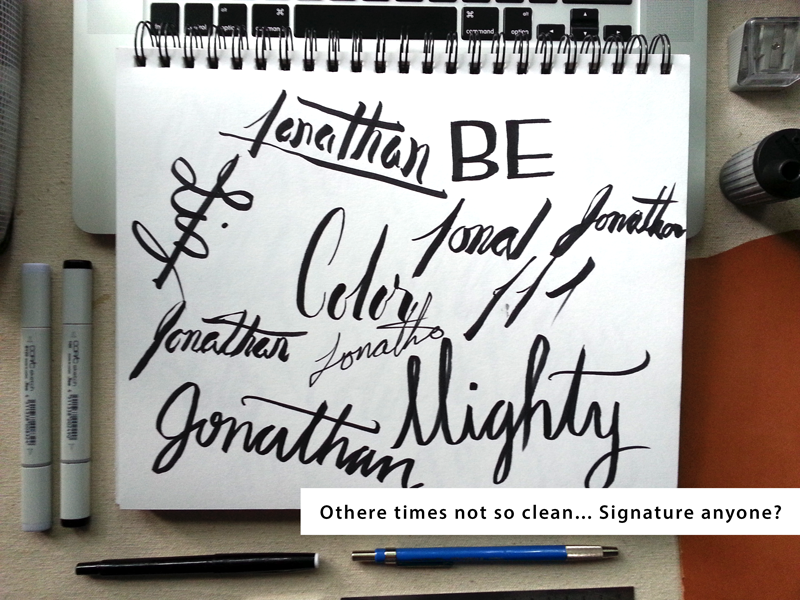 command
option
command
option
Jonathan BE
Jonat
Jonathan
Color
Jonathan
Jonatho
Mighty
Jonathan
Othere times not so clean... Signature anyone?